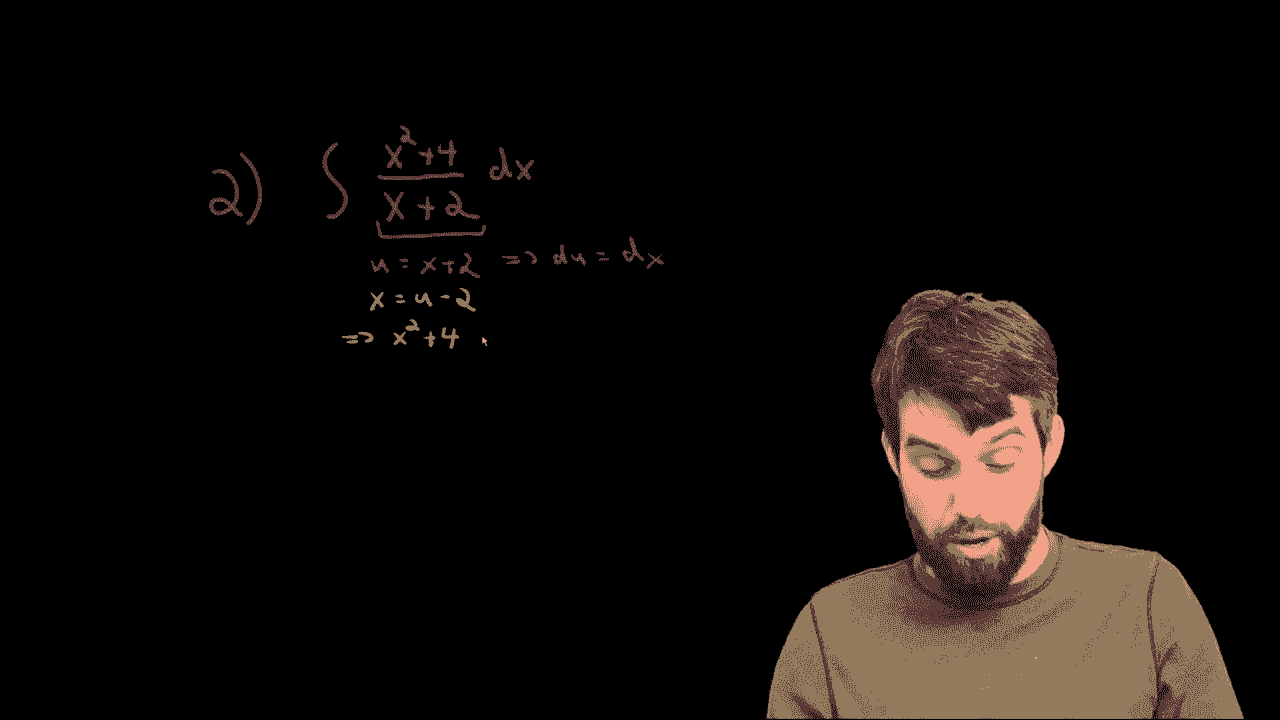 2) ∫ (x²+4)/(x+2) dx
u = x+2 => du = dx
x = u-2
=> x²+4